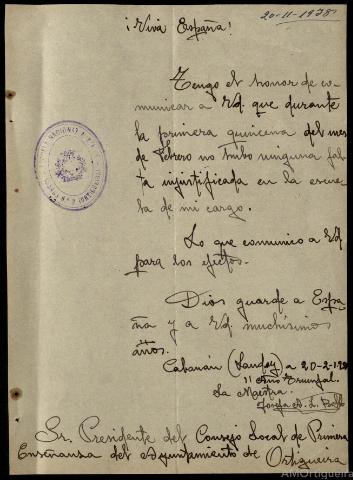 20-11-1938
¡Viva España!
Tengo el honor de co-
municar a Vd. que durante
la primera quincena del mes
de Febrero no hubo ninguna fal-
ta injustificada en la escue-
la de mi cargo.
Lo que comunico a Vd
para los efectos.
Dios guarde a Espa-
ña y a Vd. muchísimos
años.
(Landoy) a 20-2-1938
II Año Triunfal.
La Maestra.
Josefa
Sr. Presidente del Consejo Local de Primera
Enseñansa del Ayuntamiento de Ortigueira
AMOrtigueira